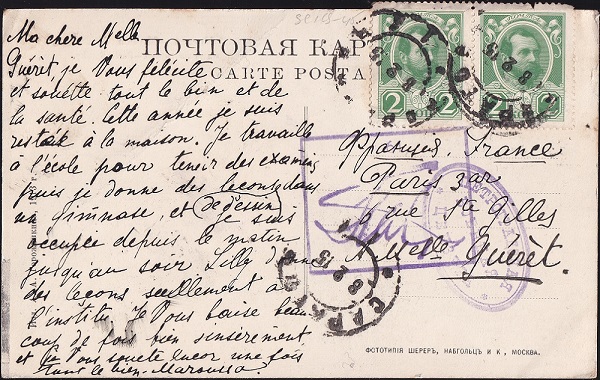 ПОЧТОВАЯ КАР
CARTE POSTA
Ma chere Melle
Guéret, je Vous félicite
et souette tout le bien et de
la santé. Cette année je suis
resták à la maison. Je travaille
à l'école pour tenir des examens
puis je donne des leconts dans
un gimnase, et de dessin je suis
occupée depuis le matin
jusqu'au soir Lilly donne
des leçons seullement à
l'institu. Je Vous baise beau
coup de fois bien sinsérement
et je Vous souete encor une fois
tout le bien. Maroussa.
2
2
Франция, France
Paris 3ar
6 rue St Gilles
A Melle Guéret.
ФОТОТИПІЯ ШЕРЕРЪ, НАБГОЛЬЦЪ И К, МОСКВА.